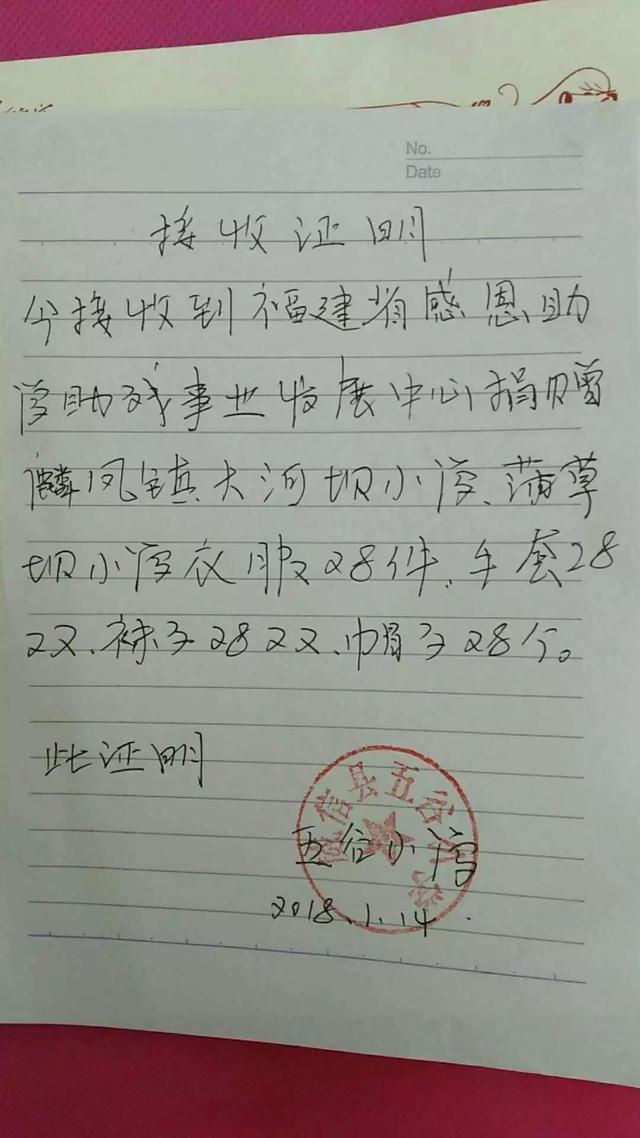 No.
Date
接收证明
今接收到福建省感恩助
学助残事业发展中心捐赠
麟凤镇大河坝小学、蒲草
坝小学衣服28件、手套28
双、袜子28双、帽子28个。
此证明
威信县五谷小学
五谷小学
2018.1.14.